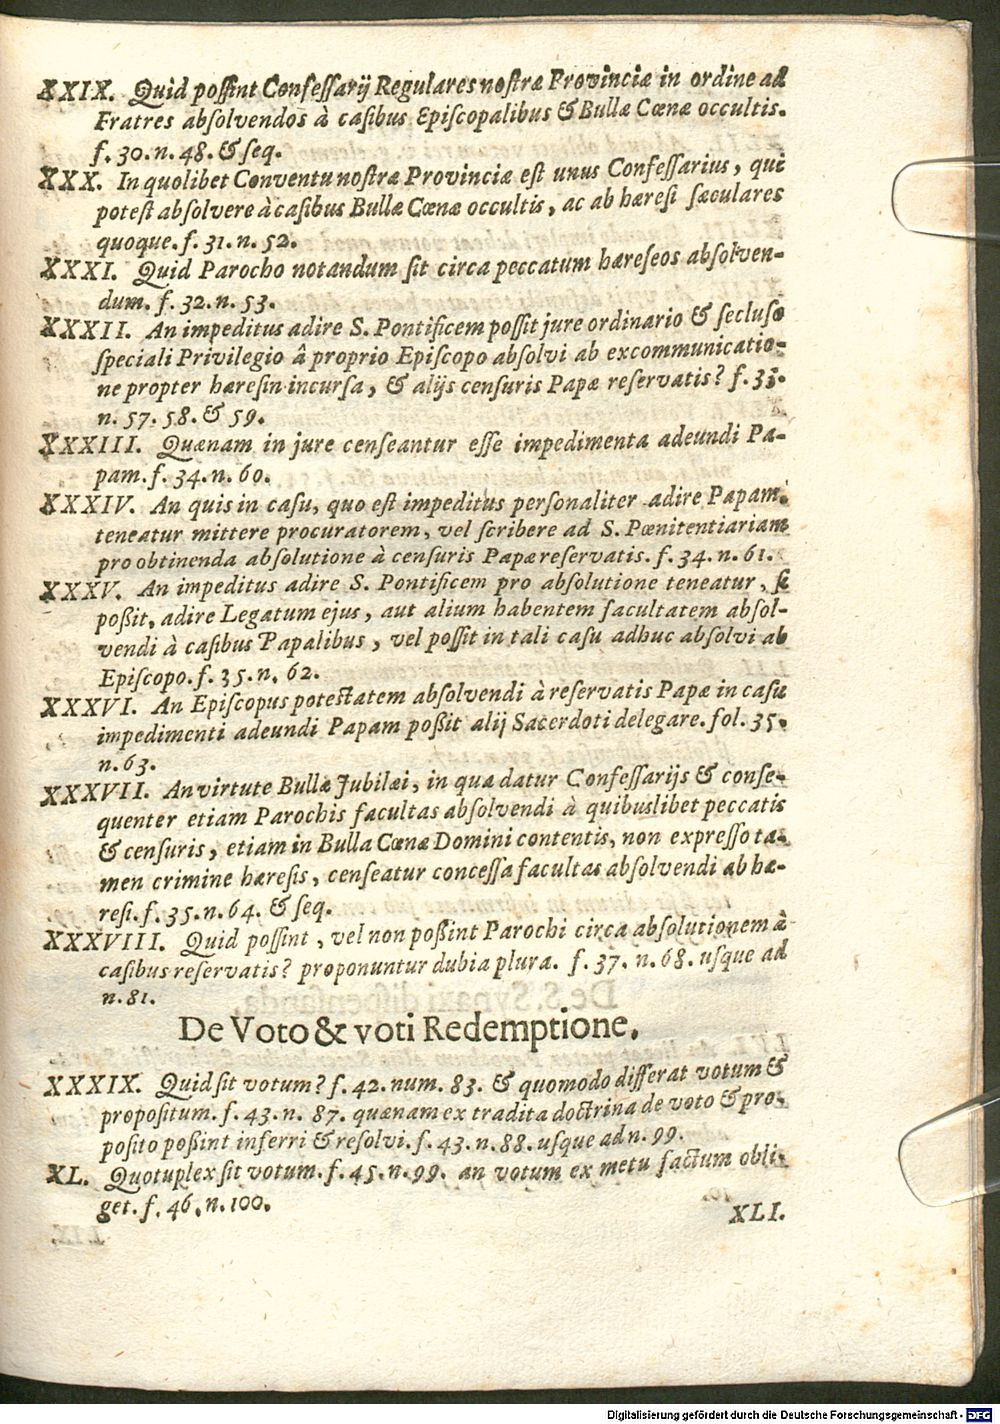 XXIX. Quid possint Confessarij Regulares nostræ Provinciæ in ordine ad
Fratres absolvendos à casibus Episcopalibus & Bullæ Cœnæ occultis.
f. 30. n. 48. & seq.
XXX. In quolibet Conventu nostræ Provinciæ est unus Confessarius, qui
potest absolvere à casibus Bullæ Cœnæ occultis, ac ab hæresi sæculares
quoque. f. 31. n. 52.
XXXI. Quid Parocho notandum sit circa peccatum hæreseos absolven-
dum. f. 32. n. 53.
XXXII. An impeditus adire S. Pontificem possit jure ordinario & secluso
speciali Privilegio â proprio Episcopo absolvi ab excommunicatio-
ne propter hæresin incursa, & alijs censuris Papæ reservatis? f. 33.
n. 57. 58. & 59.
XXXIII. Quænam in jure censeantur esse impedimenta adeundi Pa-
pam. f. 34. n. 60.
XXXIV. An quis in casu, quo est impeditus personaliter adire Papam,
teneatur mittere procuratorem, vel scribere ad S. Pœnitentiariam
pro obtinenda absolutione à censuris Papæ reservatis. f. 34. n. 61.
XXXV. An impeditus adire S. Pontificem pro absolutione teneatur, si
poßit, adire Legatum ejus, aut alium habentem facultatem absol-
vendi à casibus Papalibus, vel possit in tali casu adhuc absolvi ab
Episcopo. f. 35. n. 62.
XXXVI. An Episcopus potestatem absolvendi à reservatis Papæ in casu
impedimenti adeundi Papam poßit alij Sacerdoti delegare. fol. 35.
n. 63.
XXXVII. An virtute Bullæ Jubilæi, in qua datur Confessarijs & conse-
quenter etiam Parochis facultas absolvendi à quibuslibet peccatis
& censuris, etiam in Bulla Cœnæ Domini contentis, non expresso ta-
men crimine hæresis, censeatur concessa facultas absolvendi ab hæ-
resi. f. 35. n. 64. & seq.
XXXVIII. Quid possint, vel non poßint Parochi circa absolutionem à
casibus reservatis? proponuntur dubia plura. f. 37. n. 68. usque ad
n. 81.
De Voto & voti Redemptione.
XXXIX. Quid sit votum? f. 42. num. 83. & quomodo differat votum &
propositum. f. 43. n. 87. quænam ex tradita doctrina de voto & pro-
posito poßint inferri & resolvi. f. 43. n. 88. usque ad n. 99.
XL. Quotuplex sit votum. f. 45. n. 99. an votum ex metu factum obli-
get. f. 46. n. 100.
XLI.
Digitalisierung gefördert durch die Deutsche Forschungsgemeinschaft - DFG